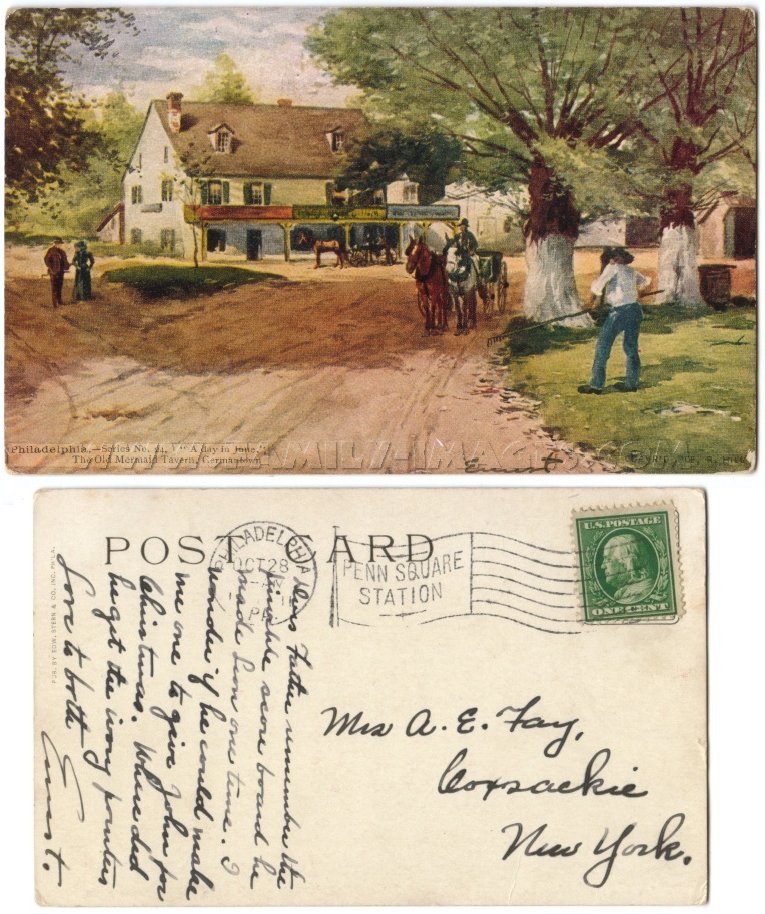 Philadelphia.—Series No. 24. "A day in June,"
The Old Mermaid Tavern, Germantown
FAMILY-IMAGES.COM
Ernest
POST CARD
PHILADELPHIA
OCT 28
PA.
PENN SQUARE
STATION
U.S. POSTAGE
ONE CENT
PUB. BY EDW. STERN & CO., INC. PHILA.
Does Father remember the
pinochle score board he
made Lon one time. I
wonder if he could make
me one to give John for
Christmas. Where did
he get the ivory pointers
Love to both
Ernest.
Mrs A. E. Fay,
Coxsackie
New York.